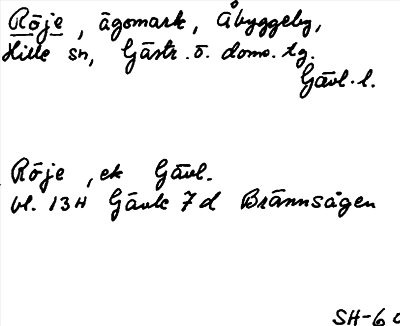 Röje, ägomark, Åbyggeby,
Hille sn, Gästr. ö. doms. tg.
Gävl. l.
Röje, ek Gävl.
bl. 13H Gävle 7d Brännsågen
SH-60